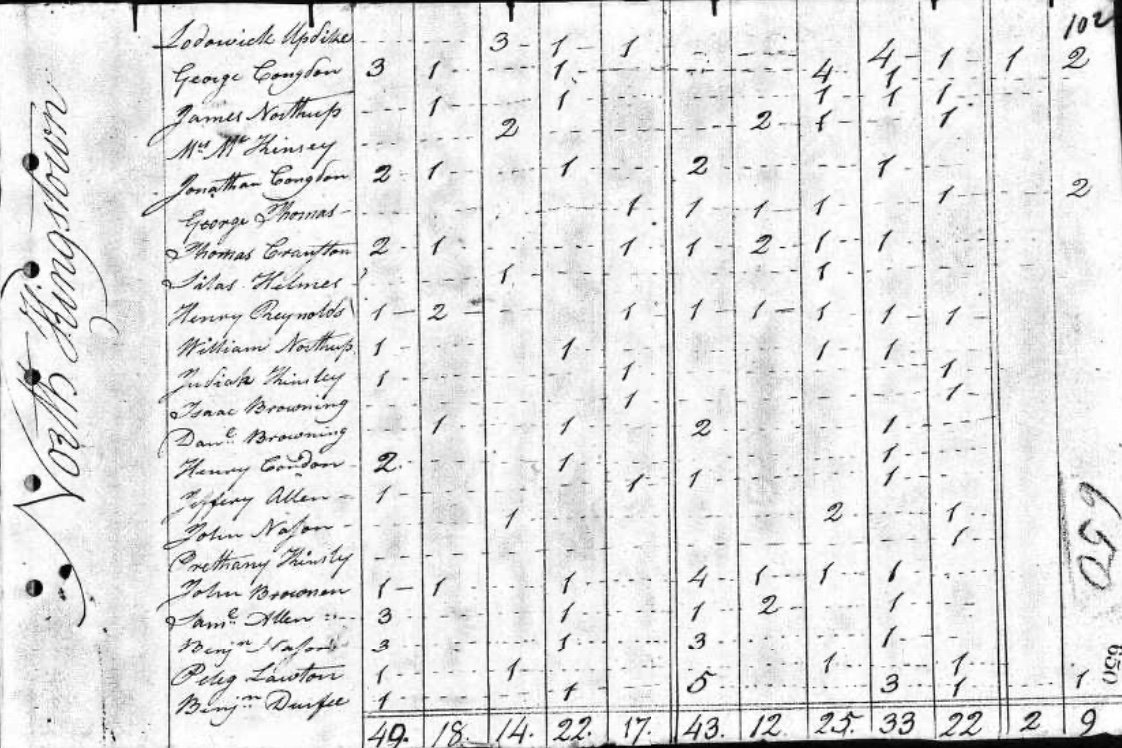 North Kingstown
102
Lodowick Updike 3 1 1 4 1 1 2
George Congdon 3 1 1 4 1
James Northup 1 1 1 1 1
Mrs Mc Kinsey 2 2 1 1
Jonathan Congdon 2 1 1 2 1
George Thomas 1 1 1 1 1 2
Thomas Cranston 2 1 1 1 2 1 1
Silas Helmes 1 1
Henry Reynolds 1 2 1 1 1 1 1 1
William Northup 1 1 1 1
Kinsley 1 1 1
Isaac Browning 1 1
Danl Browning 1 1 2 1
Henry Condon 2 1 1
Jeffery Allen 1 1 1 1
John Nason 1 2 1
Kinsley 1
John Brownen 1 1 1 4 1 1 1
Saml Allen 3 1 1 2 1
Benjn Nason 3 1 3 1
Peleg Lawton 1 1 1 1
Benjn Durfee 1 1 5 3 1 1
49. 18. 14. 22. 17. 43. 12. 25. 33 22 2 9
650
650